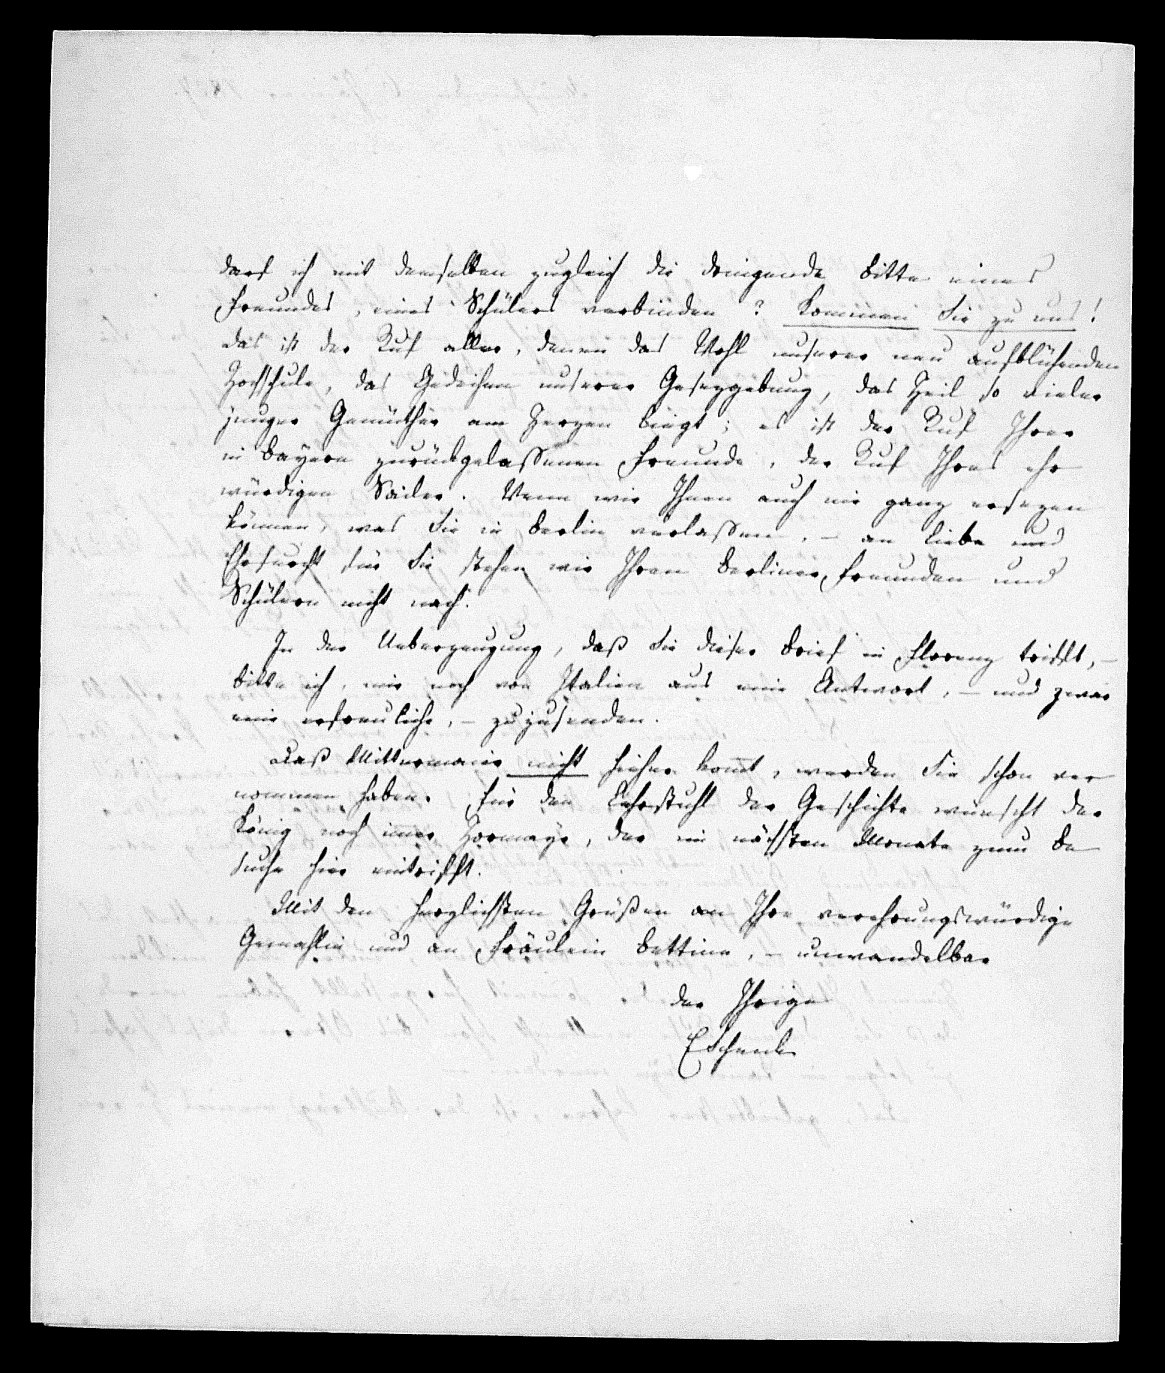 darf ich mit demselben zugleich die dringende Bitte eines
Freundes, eines Schülers verbinden? Kommen Sie zu uns!
das ist der Ruf aller, denen das Wohl unserer neu aufblühenden
Hochschule, das Gedeihen unserer Gesezgebung, das Heil so vieler
junger Gemüther am Herzen liegt; es ist der Ruf Ihrer
in Bayern zurückgelaßenen Freunde, der Ruf Ihres ehr
würdigen Sailer. Wenn wir Ihnen auch nie ganz ersezen
können, was Sie in Berlin verlaßen, – an Liebe und
Ehrfurcht für Sie stehen wir Ihren Berliner Freunden und
Schülern nicht nach.
In der Ueberzeugung, daß Sie dieser Brief in Florenz trifft, –
bitte ich, mir noch von Italien aus eine Antwort, – und zwar
eine erfreuliche, – zuzusenden.
Daß Mittermaier nicht hieher kom̄t, werden Sie schon ver
nommen haben. Für den Lehrstuhl der Geschichte wünscht der
König noch im̄er Hormayr, der im nächsten Monate zum Be
suche hier eintrifft.
Mit den herzlichsten Grüßen an Ihre verehrungswürdige
Gemahlin und an Fräulein Bettine, – unwandelbar
der Ihrige
ESchenk